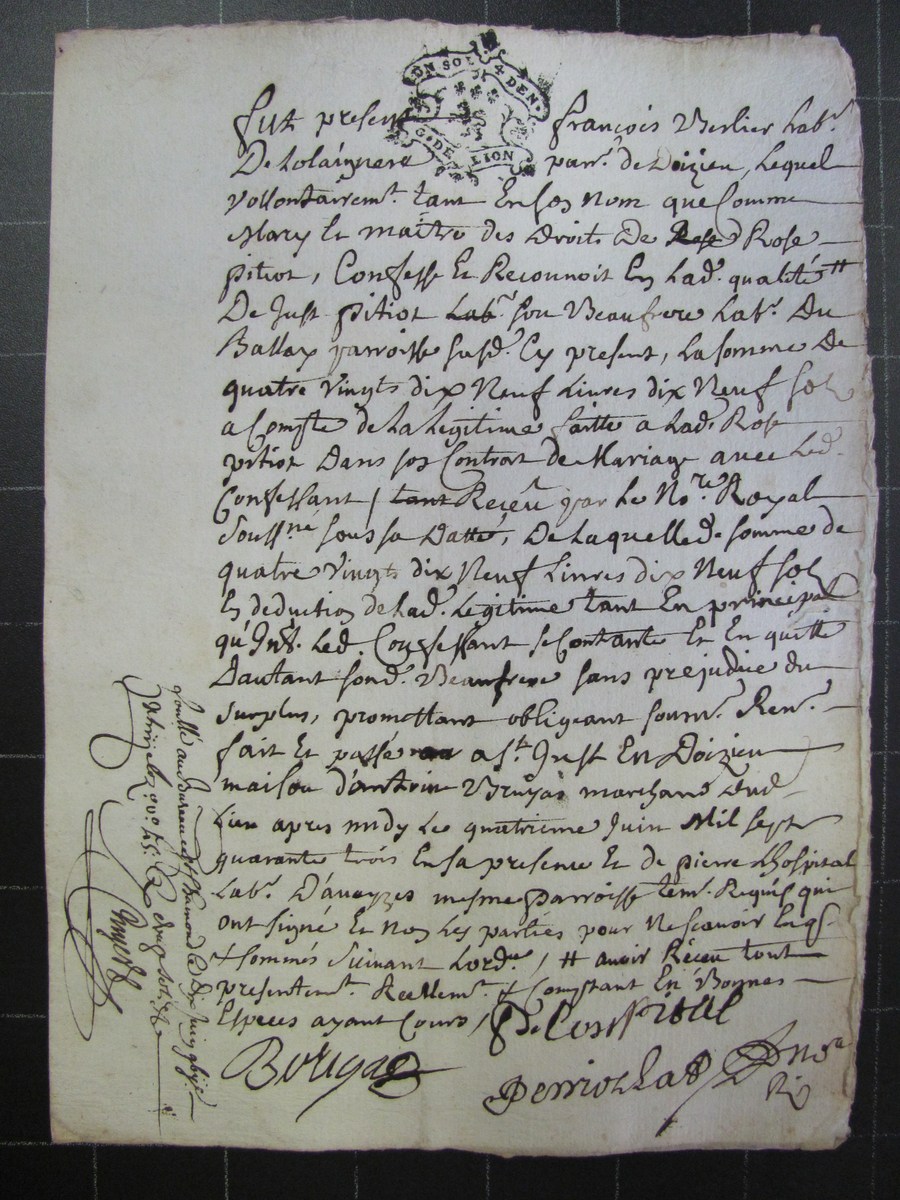 UN SOL 4 DEN.
G. DE LION
fut present françois Verlier Lab.r
De parr. de Doizieu, Lequel
vollontairem.t tant En son nom que Comme
Mary Et maître des Droits De Rose Rose
pitiot, Confesse Et Reconnoit En Lad. qualité #
De Just pitiot Lab.r son Beaufrere Lab.r Du
parroisse susd. Cy present, La somme De
quatre Vingts dix Neuf Livres dix Neuf sol
a Compte de La Legitime faitte a Lad. Rose
pitiot Dans son Contrat de Mariage avec Led.
Confessant / tant Receu par Le No.re Royal
Souss.né sous sa Datte, De Laquelle d. somme de
quatre Vingts dix Neuf Livres dix Neuf sol
En deduction de Lad. Legitime tant En principal
qu'Int. Led. Confessant se Contante Et En quitte
Dautant sond. Beaufrere sans prejudice du
surplus, promettant obligeant soum. Ren.
fait Et passé a St. Just En Doizieu
maison d'antoine Bruyas marchand dud.
Lieu apres midy Le quatrieme Juin Mil sept
quarante trois En sa presence Et de pierre Lhospital
Lab.r D'avayzes mesme parroisse tem. Requis qui
ont signé Et Non Les parties pour Ne scavoir Enqs.
& sommés suivant Lord.ce / # avoir Receu tout
presentem.t Reellem.t & Comptant En Bonnes
Especes ayant Cours /
Not.re
Ri
au Bureau de St Chamond Le dix Juin